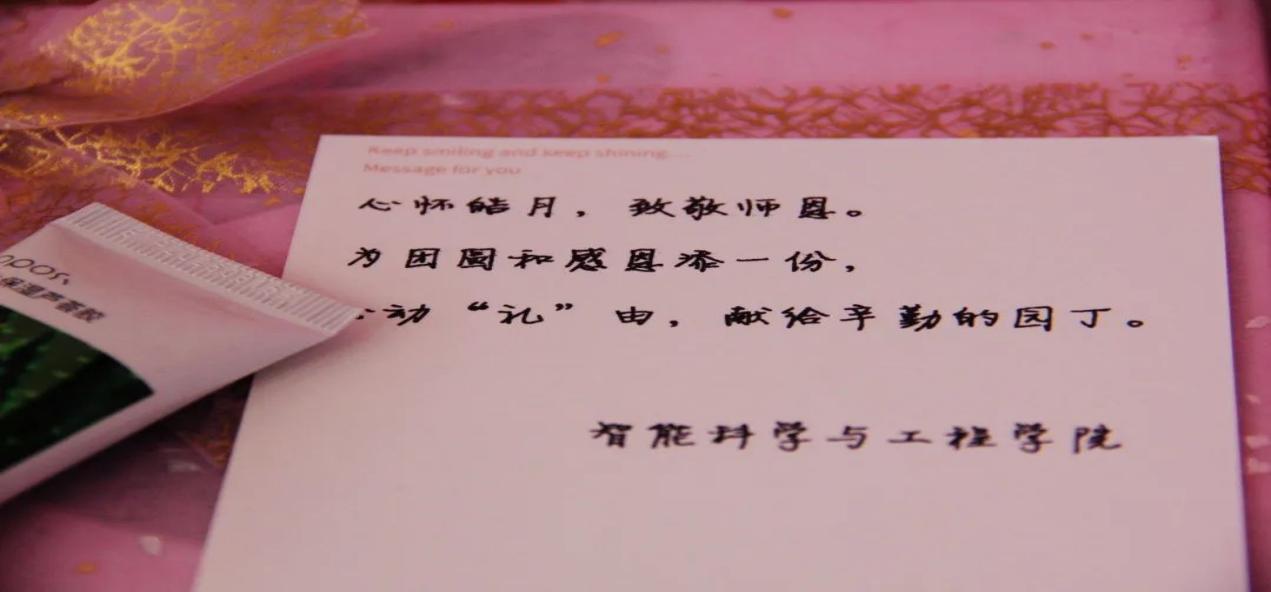 Keep smiling and keep shining....
Message for you
心怀皓月，致敬师恩。
为团圆和感恩添一份，
动“礼”由，献给辛勤的园丁。
智能科学与工程学院
保湿芦荟胶